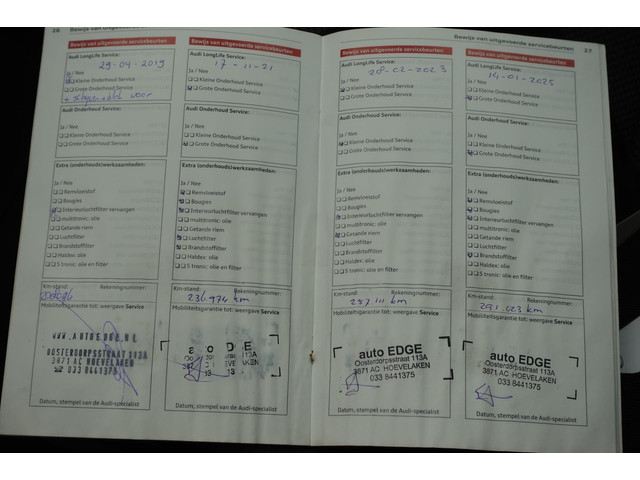 26 Bewijs van uitgevoerde servicebeurten
Bewijs van uitgevoerde servicebeurten
Audi LongLife Service:
29-04-2019
Ja / Nee
Kleine Onderhoud Service
Grote Onderhoud Service
voor
Audi Onderhoud Service:
Ja / Nee
Kleine Onderhoud Service
Grote Onderhoud Service
Extra (onderhouds)werkzaamheden:
Ja / Nee
Remvloeistof
Bougies
Interieurluchtfilter vervangen
multitronic: olie
Getande riem
Luchtfilter
Brandstoffilter
Haldex: olie
S tronic: olie en filter
Km-stand:
Rekeningnummer:
Mobiliteitsgarantie tot: weergave Service
WWW.AUTOEDGE.NL
OOSTERDORPSSTRAAT 113A
3871 AC HOEVELAKEN
033 8441375
Datum, stempel van de Audi-specialist
Bewijs van uitgevoerde servicebeurten
Audi LongLife Service:
17-11-21
Ja / Nee
Kleine Onderhoud Service
Grote Onderhoud Service
Audi Onderhoud Service:
Ja / Nee
Kleine Onderhoud Service
Grote Onderhoud Service
Extra (onderhouds)werkzaamheden:
Ja / Nee
Remvloeistof
Bougies
Interieurluchtfilter vervangen
multitronic: olie
Getande riem
Luchtfilter
Brandstoffilter
Haldex: olie
S tronic: olie en filter
Km-stand:
Rekeningnummer:
236.974 km
Mobiliteitsgarantie tot: weergave Service
EDGE
113A
Datum, stempel van de Audi-specialist
Bewijs van uitgevoerde servicebeurten 27
Bewijs van uitgevoerde servicebeurten
Audi LongLife Service:
28-02-2023
Ja / Nee
Kleine Onderhoud Service
Grote Onderhoud Service
Audi Onderhoud Service:
Ja / Nee
Kleine Onderhoud Service
Grote Onderhoud Service
Extra (onderhouds)werkzaamheden:
Ja / Nee
Remvloeistof
Bougies
Interieurluchtfilter vervangen
multitronic: olie
Getande riem
Luchtfilter
Brandstoffilter
Haldex: olie
S tronic: olie en filter
Km-stand:
Rekeningnummer:
257.111 km
Mobiliteitsgarantie tot: weergave Service
auto EDGE
Oosterdorpsstraat 113A
3871 AC HOEVELAKEN
033 8441375
Datum, stempel van de Audi-specialist
Bewijs van uitgevoerde servicebeurten
Audi LongLife Service:
14-01-2025
Ja / Nee
Kleine Onderhoud Service
Grote Onderhoud Service
Audi Onderhoud Service:
Ja / Nee
Kleine Onderhoud Service
Grote Onderhoud Service
Extra (onderhouds)werkzaamheden:
Ja / Nee
Remvloeistof
Bougies
Interieurluchtfilter vervangen
multitronic: olie
Getande riem
Luchtfilter
Brandstoffilter
Haldex: olie
S tronic: olie en filter
Km-stand:
Rekeningnummer:
Mobiliteitsgarantie tot: weergave Service
auto EDGE
Oosterdorpsstraat 113A
3871 AC HOEVELAKEN
033 8441375
Datum, stempel van de Audi-specialist